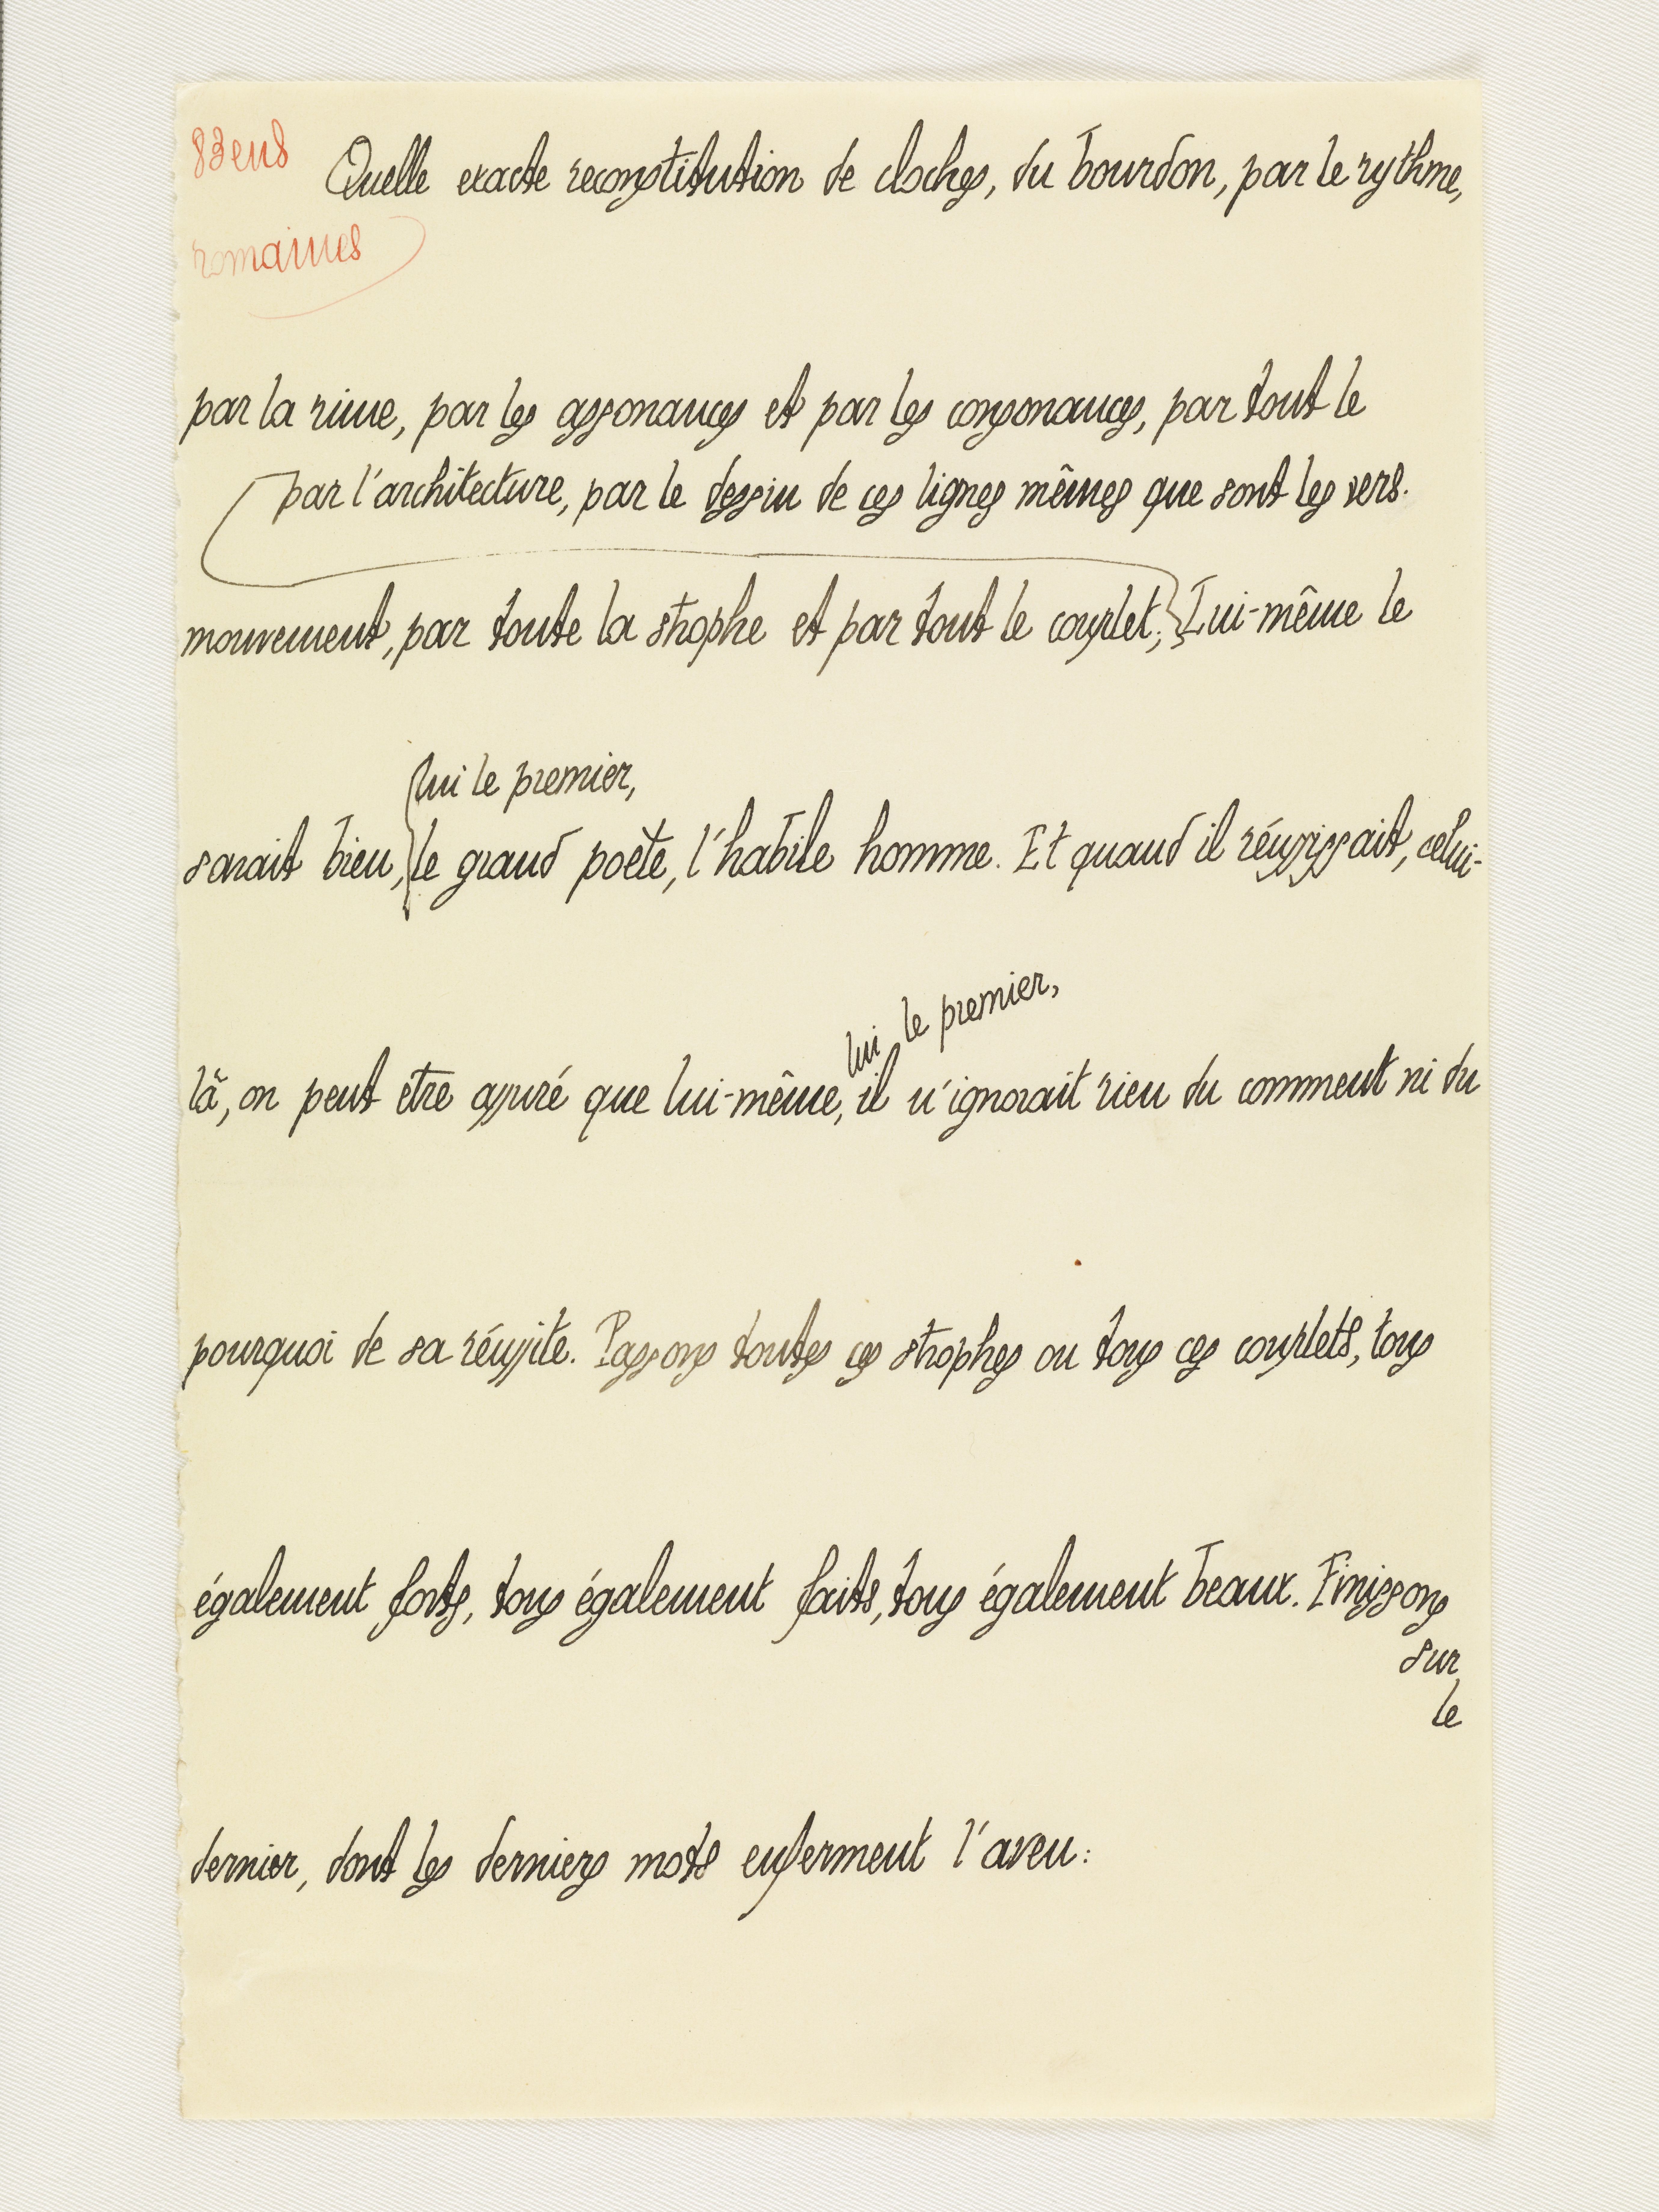 83 ens
romaines
Quelle exacte reconstitution de cloches, du bourdon, par le rythme,
par la rime, par les assonances et par les consonances, par tout le
par l'architecture, par le dessin de ces lignes mêmes que sont les vers.
mouvement, par toute la strophe et par tout le couplet; Lui-même le
lui le premier,
savait bien, le grand poète, l'habile homme. Et quand il réussissait, celui-
lui le premier,
là, on peut être assuré que lui-même, il n'ignorait rien du comment ni du
pourquoi de sa réussite. Passons toutes ces strophes ou tous ces couplets, tous
également forts, tous également faits, tous également beaux. Finissons
sur
le
dernier, dont les derniers mots enferment l'aveu: